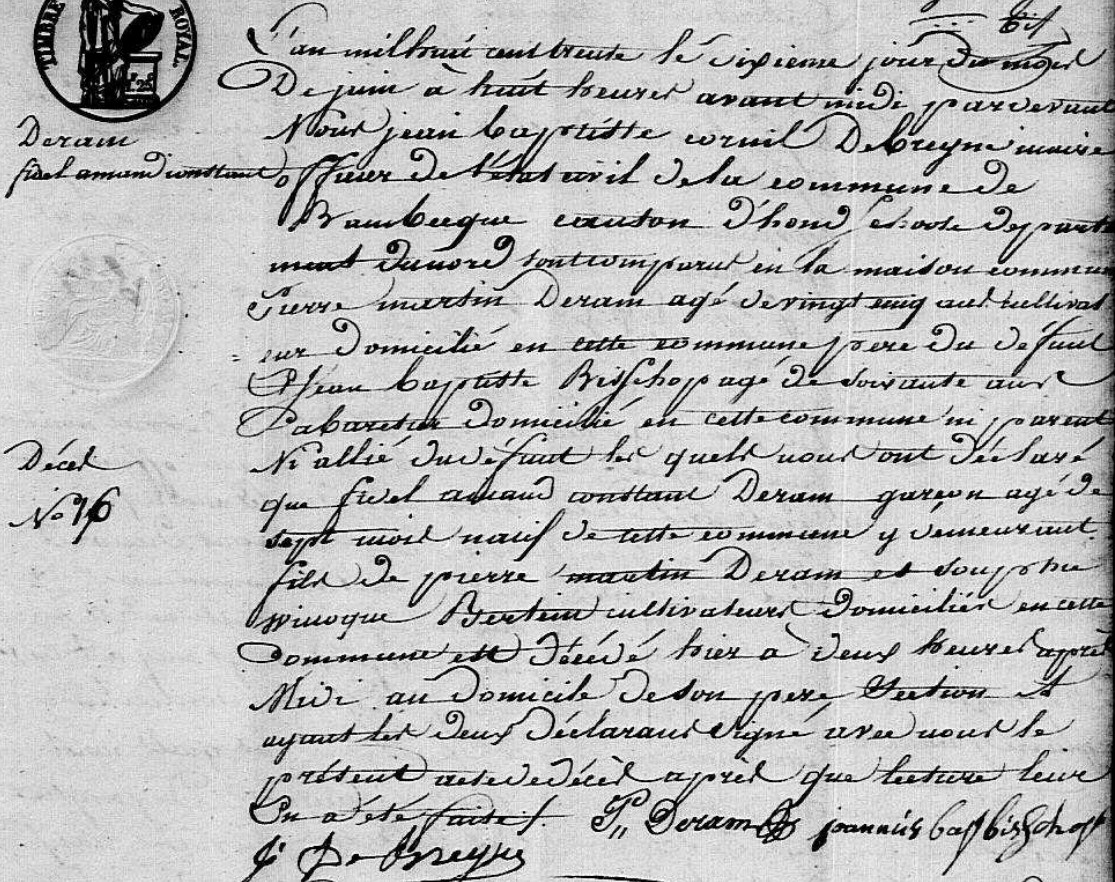 TIMBRE ROYAL
Bis
L'an mil huit cent trente le sixieme jour du mois
De juin à huit heures avant midi pardevant
Nous jean baptiste cornil Debreyne maire
officier de l'état civil de la commune de
Bambecque canton d'hondschoote départe
ment du nord sont comparus en la maison commune
Pierre martin Deram agé de vingt cinq ans cultivat
eur Domicilié en cette commune pere du défunt
Et Jean baptiste Bisschop agé de soixante ans
Cabaretier Domicilié en cette commune ni parent
Ni allié du défunt les quels nous ont déclaré
que fidel amand constant Deram garçon agé de
sept mois natif de cette commune y demeurant
fils de pierre martin Deram et sophie
winoque Bertein cultivateurs domiciliés en cette
Commune est décédé hier à deux heures après
Midi au domicile de son pere, Section A
ayant les deux déclarans signé avec nous le
présent acte de décès après que lecture leur
En a été faite
P. Deram joannis bap bisschop
J De Breyne
Deram
fidel amand constant
Décès
No 16